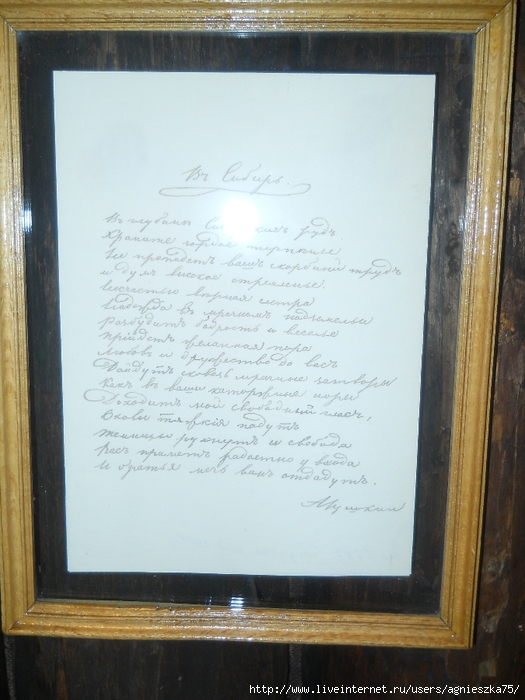 Въ Сибирь.
Въ глубинѣ Сибирскихъ рудъ
Храните гордое терпѣнье
Не пропадетъ вашъ скорбный трудъ
и думъ высокое стремленье.
Несчастью вѣрная сестра
Надежда въ мрачномъ подземельи
Разбудитъ бодрость и веселье
Прійдетъ желанная пора
Любовь и дружество до васъ
Дойдутъ сквозь мрачные затворы
Какъ въ ваши каторжныя норы
Доходитъ мой свободный гласъ,
Оковы тяжкія падутъ
Темницы рухнутъ и свобода
Васъ приметъ радостно у входа
И братья мечъ вамъ отдадутъ.
А Пушкин
http://www.liveinternet.ru/users/agnieszka75/